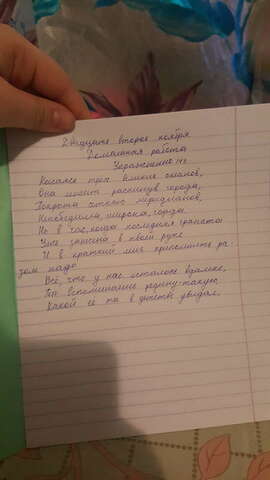 Двадцать второе ноября
Домашняя работа
Упражнение 183
Касаясь трех великих океанов,
Она лежит, раскинув города,
Покрыта сеткою меридианов,
Непобедима, широка, горда.
Но в час, когда последняя граната
Уже занесена в твоей руке
И в краткий миг припомнить ра
зом надо
Всё, что у нас осталось вдалеке,
Ты вспоминаешь родину - такую,
Какой её ты в детстве увидал.